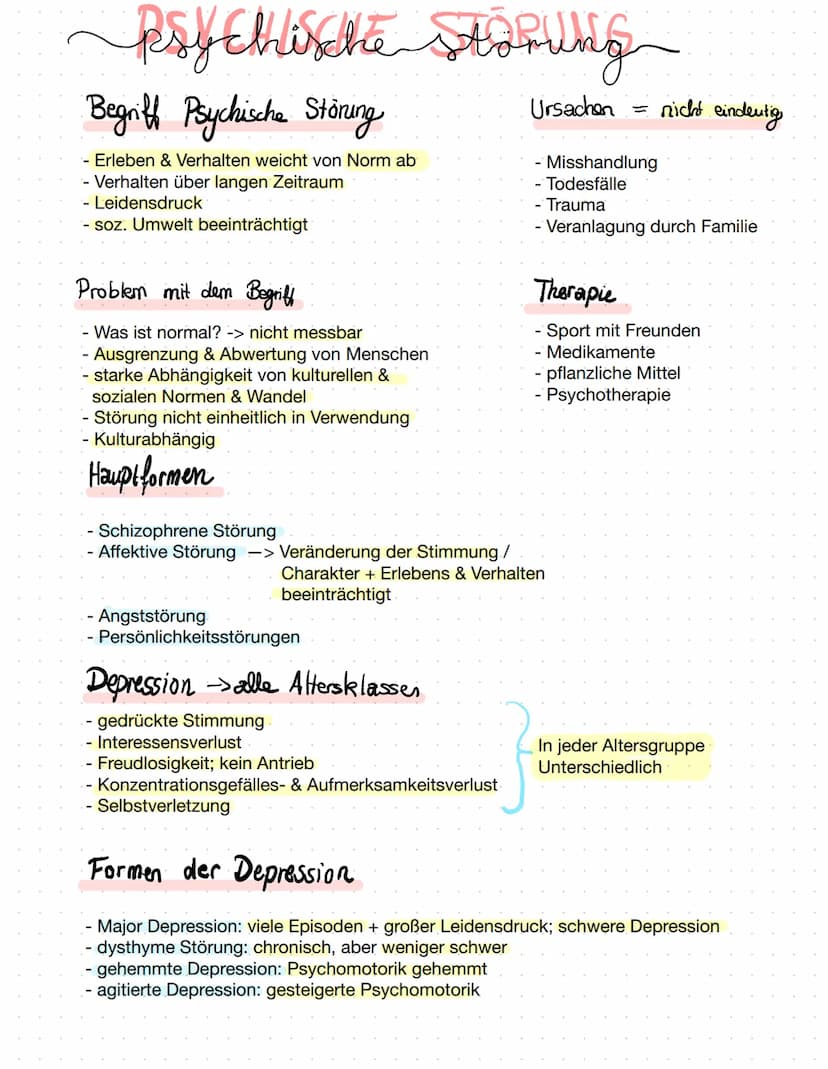 PSYCHISCHE STÖRUNG
psychische störung
Begriff Psychische Störung
- Erleben & Verhalten weicht von Norm ab
- Verhalten über langen Zeitraum
- Leidensdruck
- soz. Umwelt beeinträchtigt
Ursachen = nicht eindeutig
- Misshandlung
- Todesfälle
- Trauma
- Veranlagung durch Familie
Problem mit dem Begriff
- Was ist normal? -> nicht messbar
- Ausgrenzung & Abwertung von Menschen
- starke Abhängigkeit von kulturellen &
sozialen Normen & Wandel
- Störung nicht einheitlich in Verwendung
- Kulturabhängig
Therapie
- Sport mit Freunden
- Medikamente
- pflanzliche Mittel
- Psychotherapie
Hauptformen
- Schizophrene Störung
- Affektive Störung —> Veränderung der Stimmung /
Charakter + Erlebens & Verhalten
beeinträchtigt
- Angststörung
- Persönlichkeitsstörungen
Depression -> alle Altersklassen
- gedrückte Stimmung
- Interessensverlust
- Freudlosigkeit; kein Antrieb
- Konzentrationsgefälles- & Aufmerksamkeitsverlust
- Selbstverletzung
In jeder Altersgruppe
Unterschiedlich
Formen der Depression
- Major Depression: viele Episoden + großer Leidensdruck; schwere Depression
- dysthyme Störung: chronisch, aber weniger schwer
- gehemmte Depression: Psychomotorik gehemmt
- agitierte Depression: gesteigerte Psychomotorik